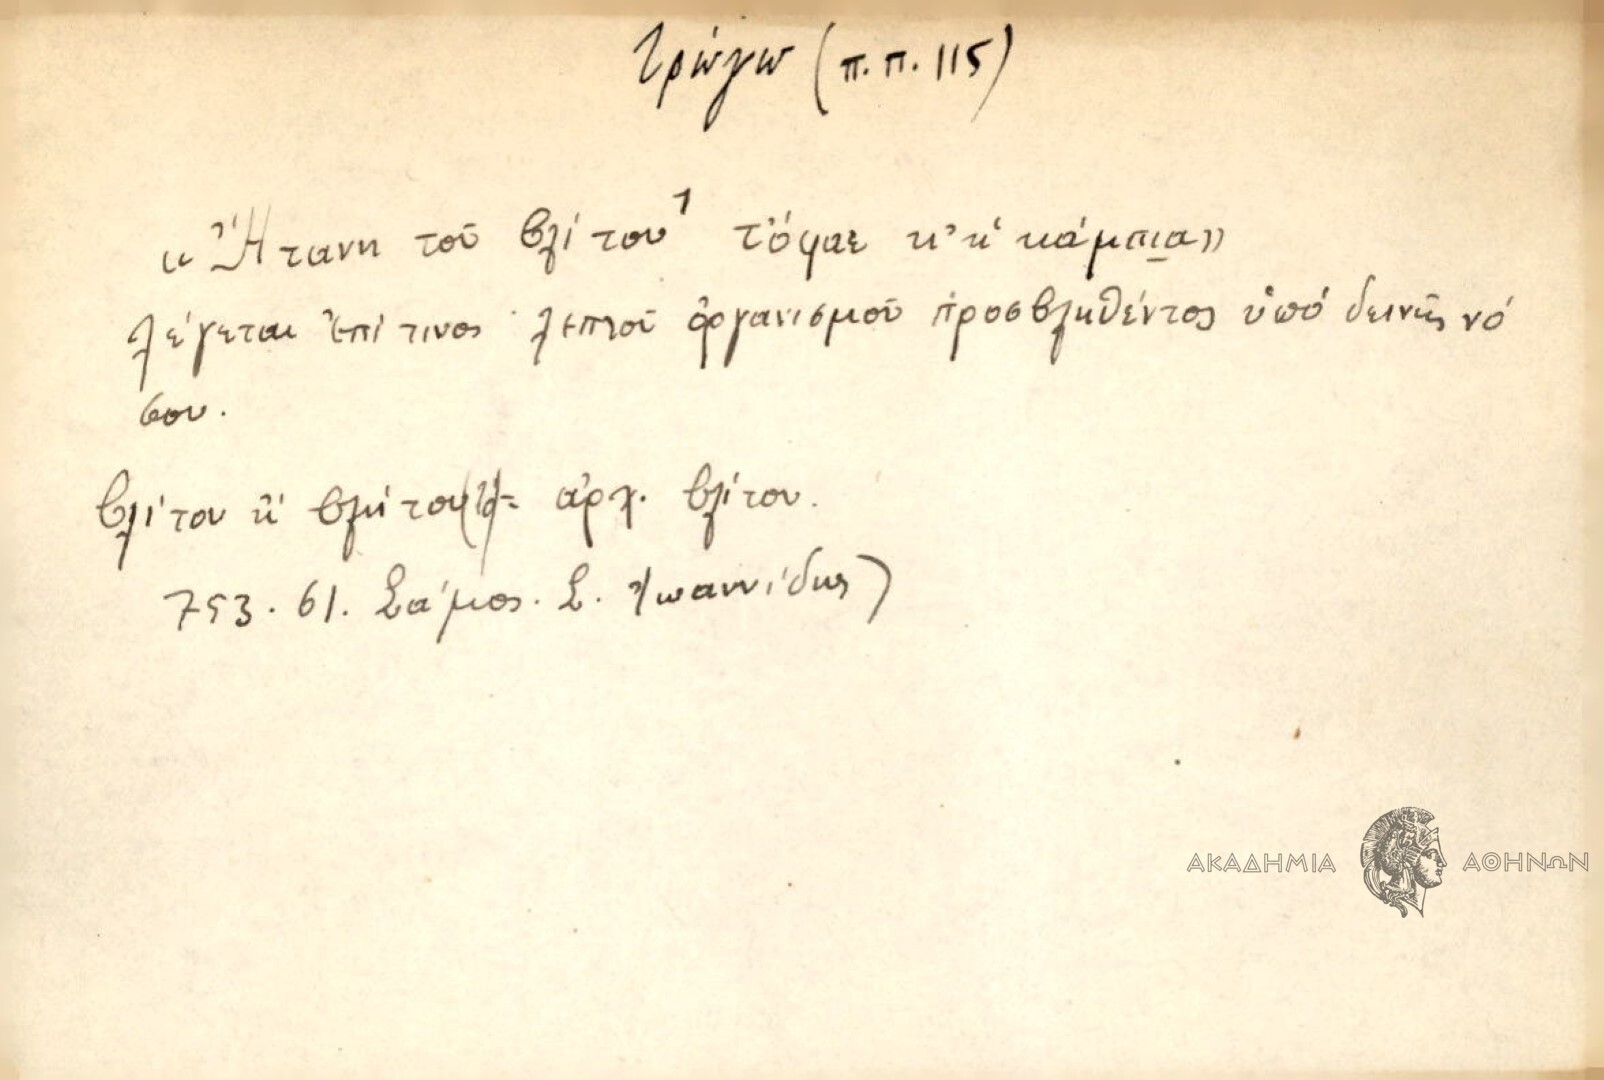 Τρώγω (π.π. 115)
«Ἤτανη τοῦ βλίτου¹ τὄφαε κ’ κάμπια»
λέγεται ἐπί τινος λεπτοῦ ὀργανισμοῦ προσβληθέντος ὑπό δεινῆς νό
σου.
βλίτου ἤ βλήτου = ἀρχ. βλίτον.
753. 61. Σάμος. Σ. Ἰωαννίδης)
ΑΚΑΔΗΜΙΑ ΑΘΗΝΩΝ